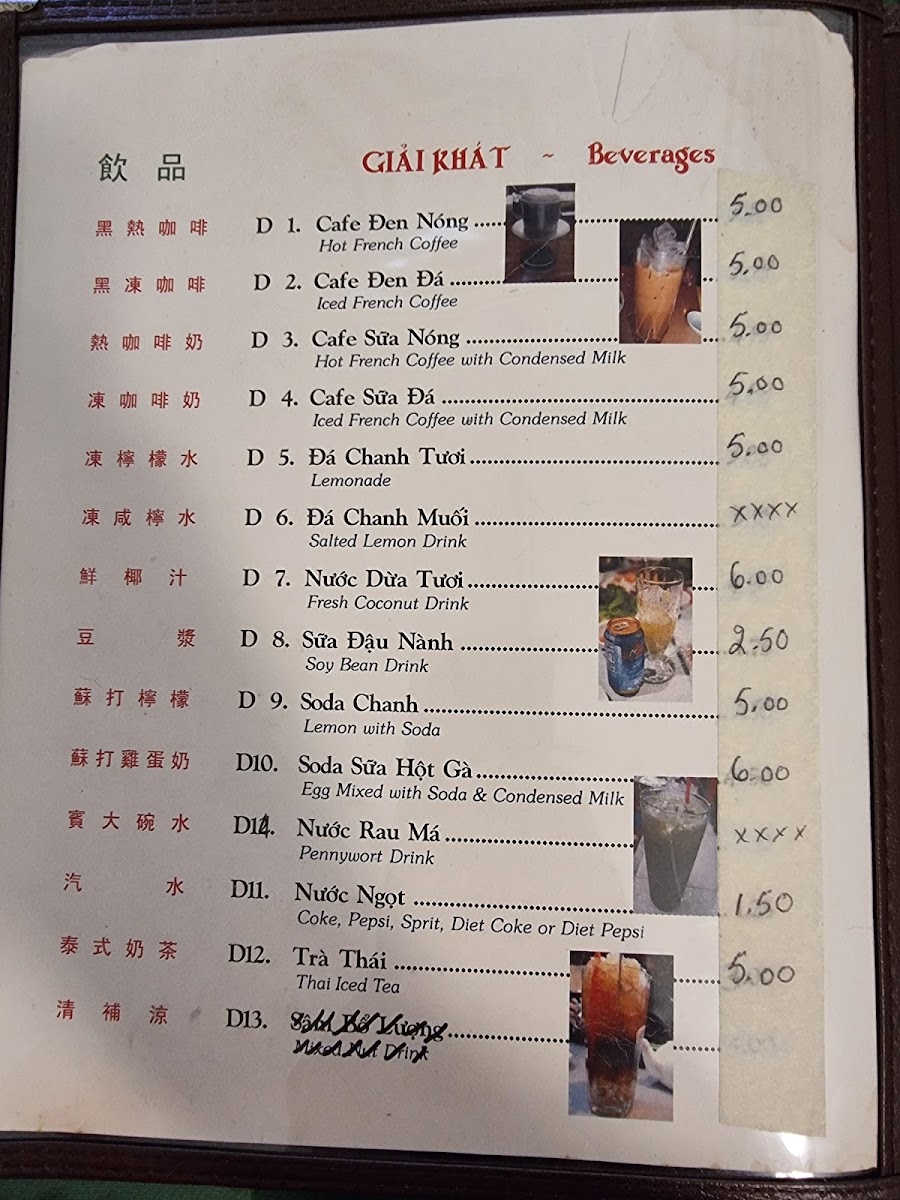 飲品 GIẢI KHÁT ~ Beverages
黑熱咖啡 D 1. Cafe Đen Nóng 5.00
Hot French Coffee
黑凍咖啡 D 2. Cafe Đen Đá 5.00
Iced French Coffee
熱咖啡奶 D 3. Cafe Sữa Nóng 5.00
Hot French Coffee with Condensed Milk
凍咖啡奶 D 4. Cafe Sữa Đá 5.00
Iced French Coffee with Condensed Milk
凍檸檬水 D 5. Đá Chanh Tươi 5.00
Lemonade
凍咸檸水 D 6. Đá Chanh Muối xxxx
Salted Lemon Drink
鮮椰汁 D 7. Nước Dừa Tươi 6.00
Fresh Coconut Drink
豆漿 D 8. Sữa Đậu Nành 2.50
Soy Bean Drink
蘇打檸檬 D 9. Soda Chanh 5.00
Lemon with Soda
蘇打雞蛋奶 D10. Soda Sữa Hột Gà 6.00
Egg Mixed with Soda & Condensed Milk
賓大碗水 D14. Nước Rau Má xxxx
Pennywort Drink
汽水 D11. Nước Ngọt 1.50
Coke, Pepsi, Sprit, Diet Coke or Diet Pepsi
泰式奶茶 D12. Trà Thái 5.00
Thai Iced Tea
清補涼 D13. Sâm Bổ Lượng
Mixed Nut Drink